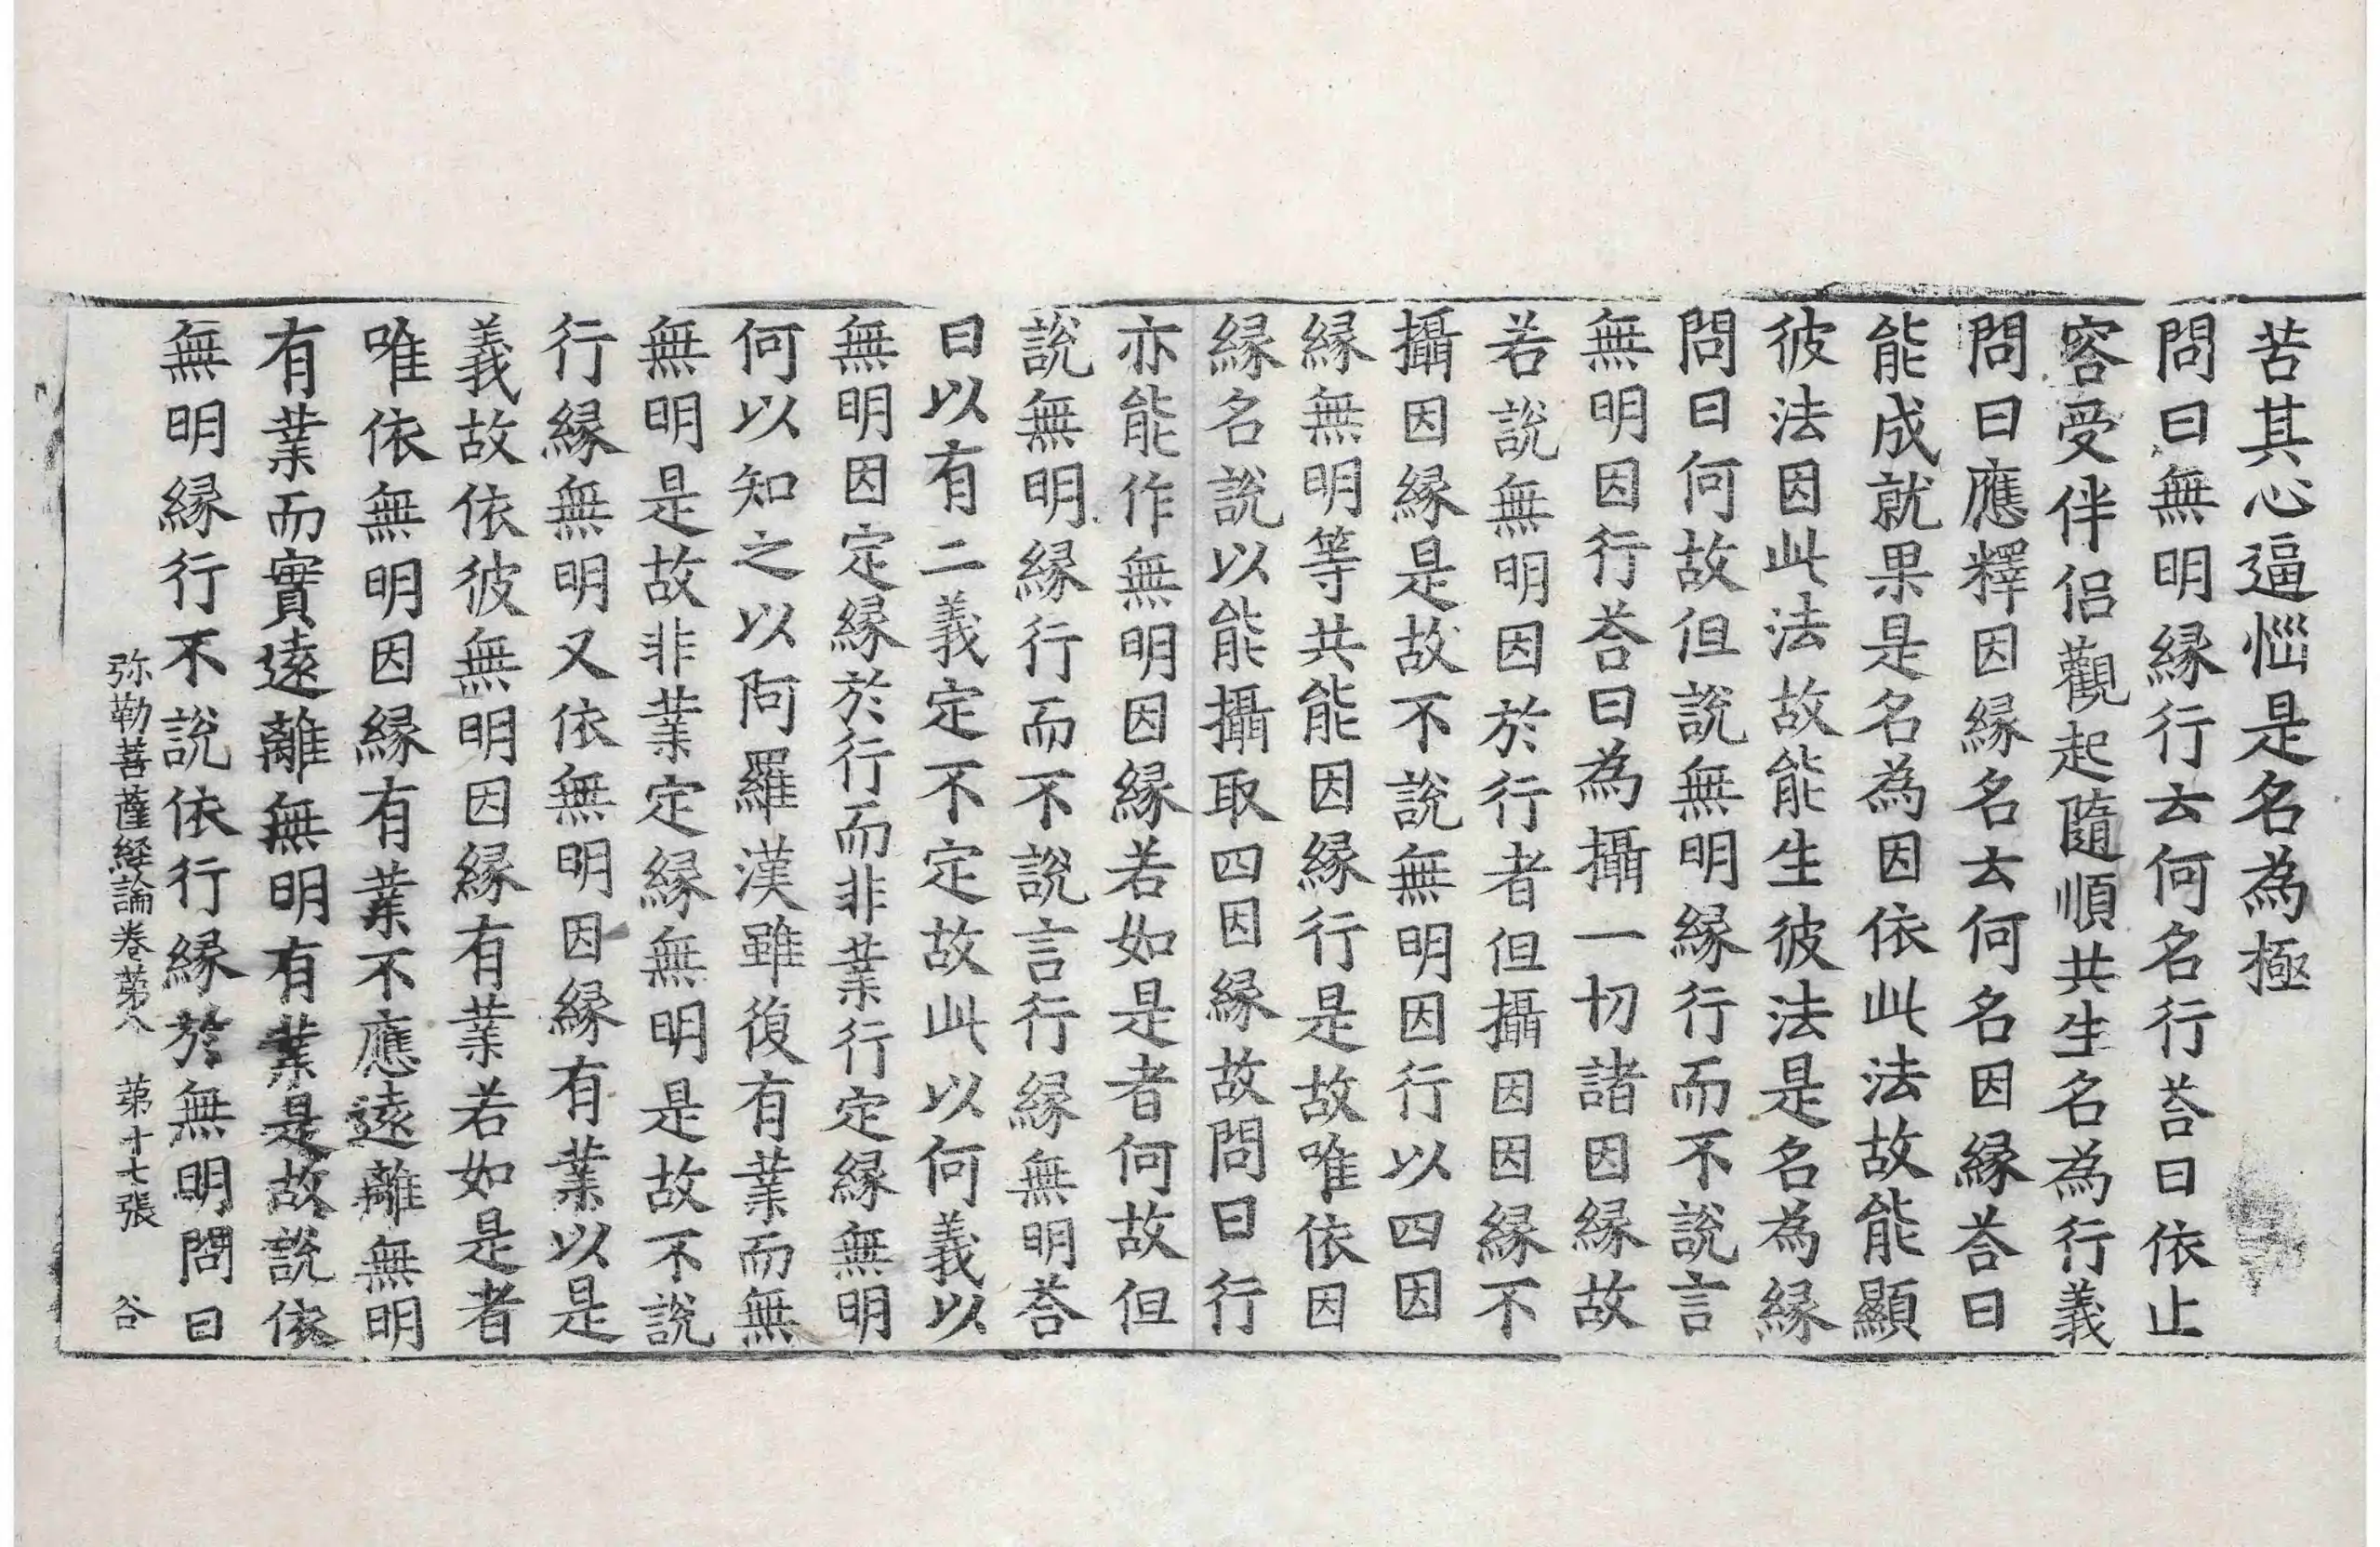 苦其心逼惱是名為極
問曰無明縁行去何名行荅曰依止
容受伴侣觀起隨順共生名為行義
問曰應釋因縁名去何名因縁荅曰
能成就果是名為因依此法故能顯
彼法因此法故能生彼法是名為縁
問曰何故但說無明縁行而不說言
無明因行荅曰為攝一切諸因縁故
若說無明因於行者但攝因因縁不
攝因縁是故不說無明因行以四因
縁無明等共能因縁行是故唯依因
縁名說以能攝取四因縁故問曰行
亦能作無明因縁若如是者何故但
說無明縁行而不說言行縁無明荅
曰以有二義定不定故此以何義以
無明因定縁於行而非業行定縁無明
何以知之以阿羅漢雖復有業而無
無明是故非業定縁無明是故不說
行縁無明又依無明因縁有業以是
義故依彼無明因縁有業若如是者
唯依無明因縁有業不應遠離無明
有業而實遠離無明有業是故說依
無明縁行不說依行縁於無明問曰
弥勒菩薩経論卷苐八 苐十七張 谷